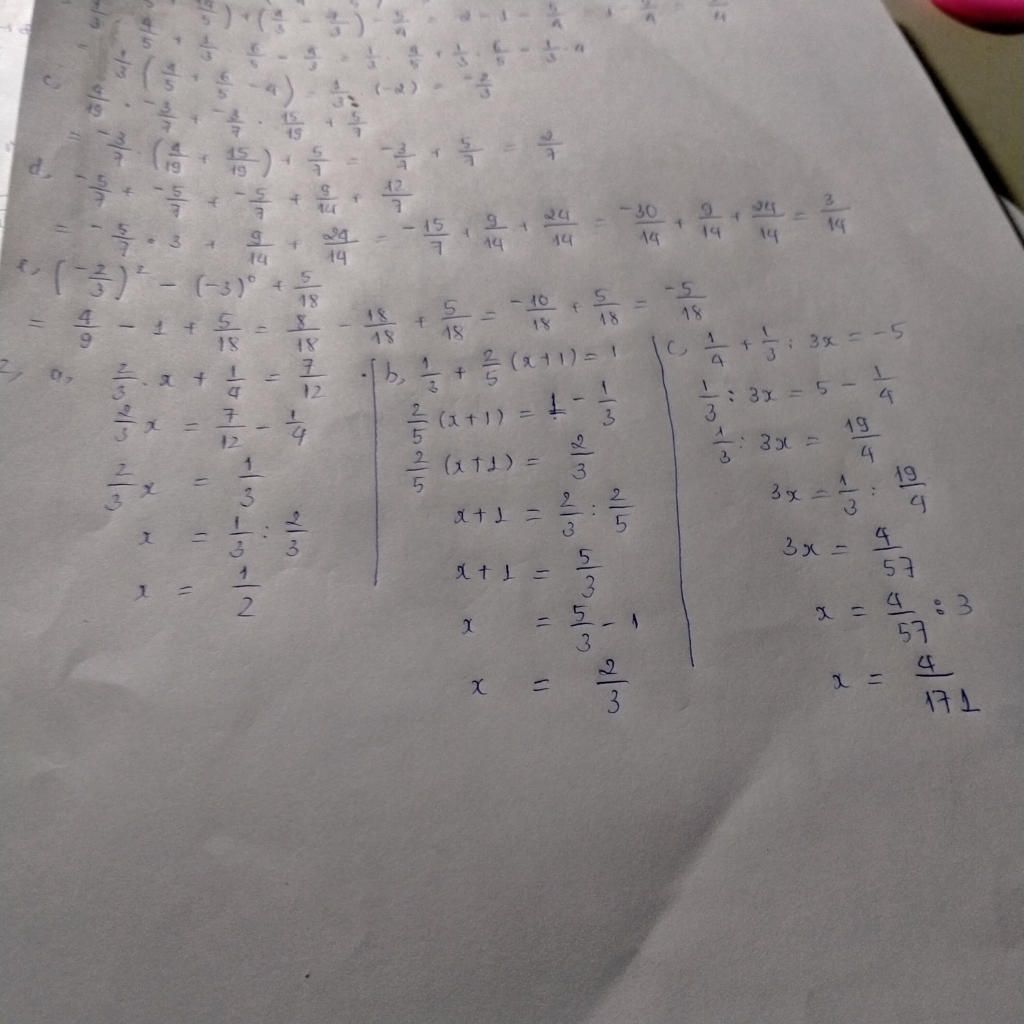 = 1/3 (4/5 + 6/5 - 4) = 1/3 . (-2) = -2/3
c, 4/19 . -3/7 + -3/7 . 15/19 + 5/7
= -3/7 . (4/19 + 15/19) + 5/7 = -3/7 + 5/7 = 2/7
d, -5/7 + -5/7 + -5/7 + 9/14 + 12/7
= -5/7 . 3 + 9/14 + 24/14 = -15/7 + 9/14 + 24/14 = -30/14 + 9/14 + 24/14 = 3/14
(-2/3)² - (-3)⁰ + 5/18
= 4/9 - 1 + 5/18 = 8/18 - 18/18 + 5/18 = -10/18 + 5/18 = -5/18
2, a, 2/3 . x + 1/4 = 7/12
2/3 x = 7/12 - 1/4
2/3 x = 1/3
x = 1/3 : 2/3
x = 1/2
b, 1/3 + 2/5 (x+1) = 1
2/5 (x+1) = 1 - 1/3
2/5 (x+1) = 2/3
x+1 = 2/3 : 2/5
x+1 = 5/3
x = 5/3 - 1
x = 2/3
c, 1/4 + 1/3 : 3x = -5
1/3 : 3x = 5 - 1/4
1/3 : 3x = 19/4
3x = 1/3 : 19/4
3x = 4/57
x = 4/57 : 3
x = 4/171